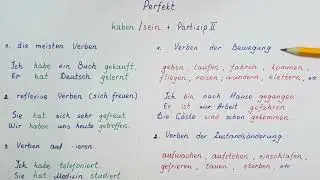 Perfekt
haben / sein + Partizip II
1. die meisten Verben
Ich habe ein Buch gekauft.
Er hat Deutsch gelernt
2. reflexive Verben (sich freuen)
Sie hat sich sehr gefreut
Wir haben uns heute getroffen.
3 Verben auf -ieren
Ich habe telefoniert
Sie hat Medizin studiert
1. Verben der Bewegung
gehen, laufen, fahren, kommen,
fliegen, reisen, wandern, klettern, etc
Ich bin nach Hause gegangen
Er ist zur Arbeit gefahren
Die Gäste sind schon gekommen.
2. Verben der Zustandsänderung
aufwachen, aufstehen, einschlafen,
gefrieren, tauen, sterben, etc